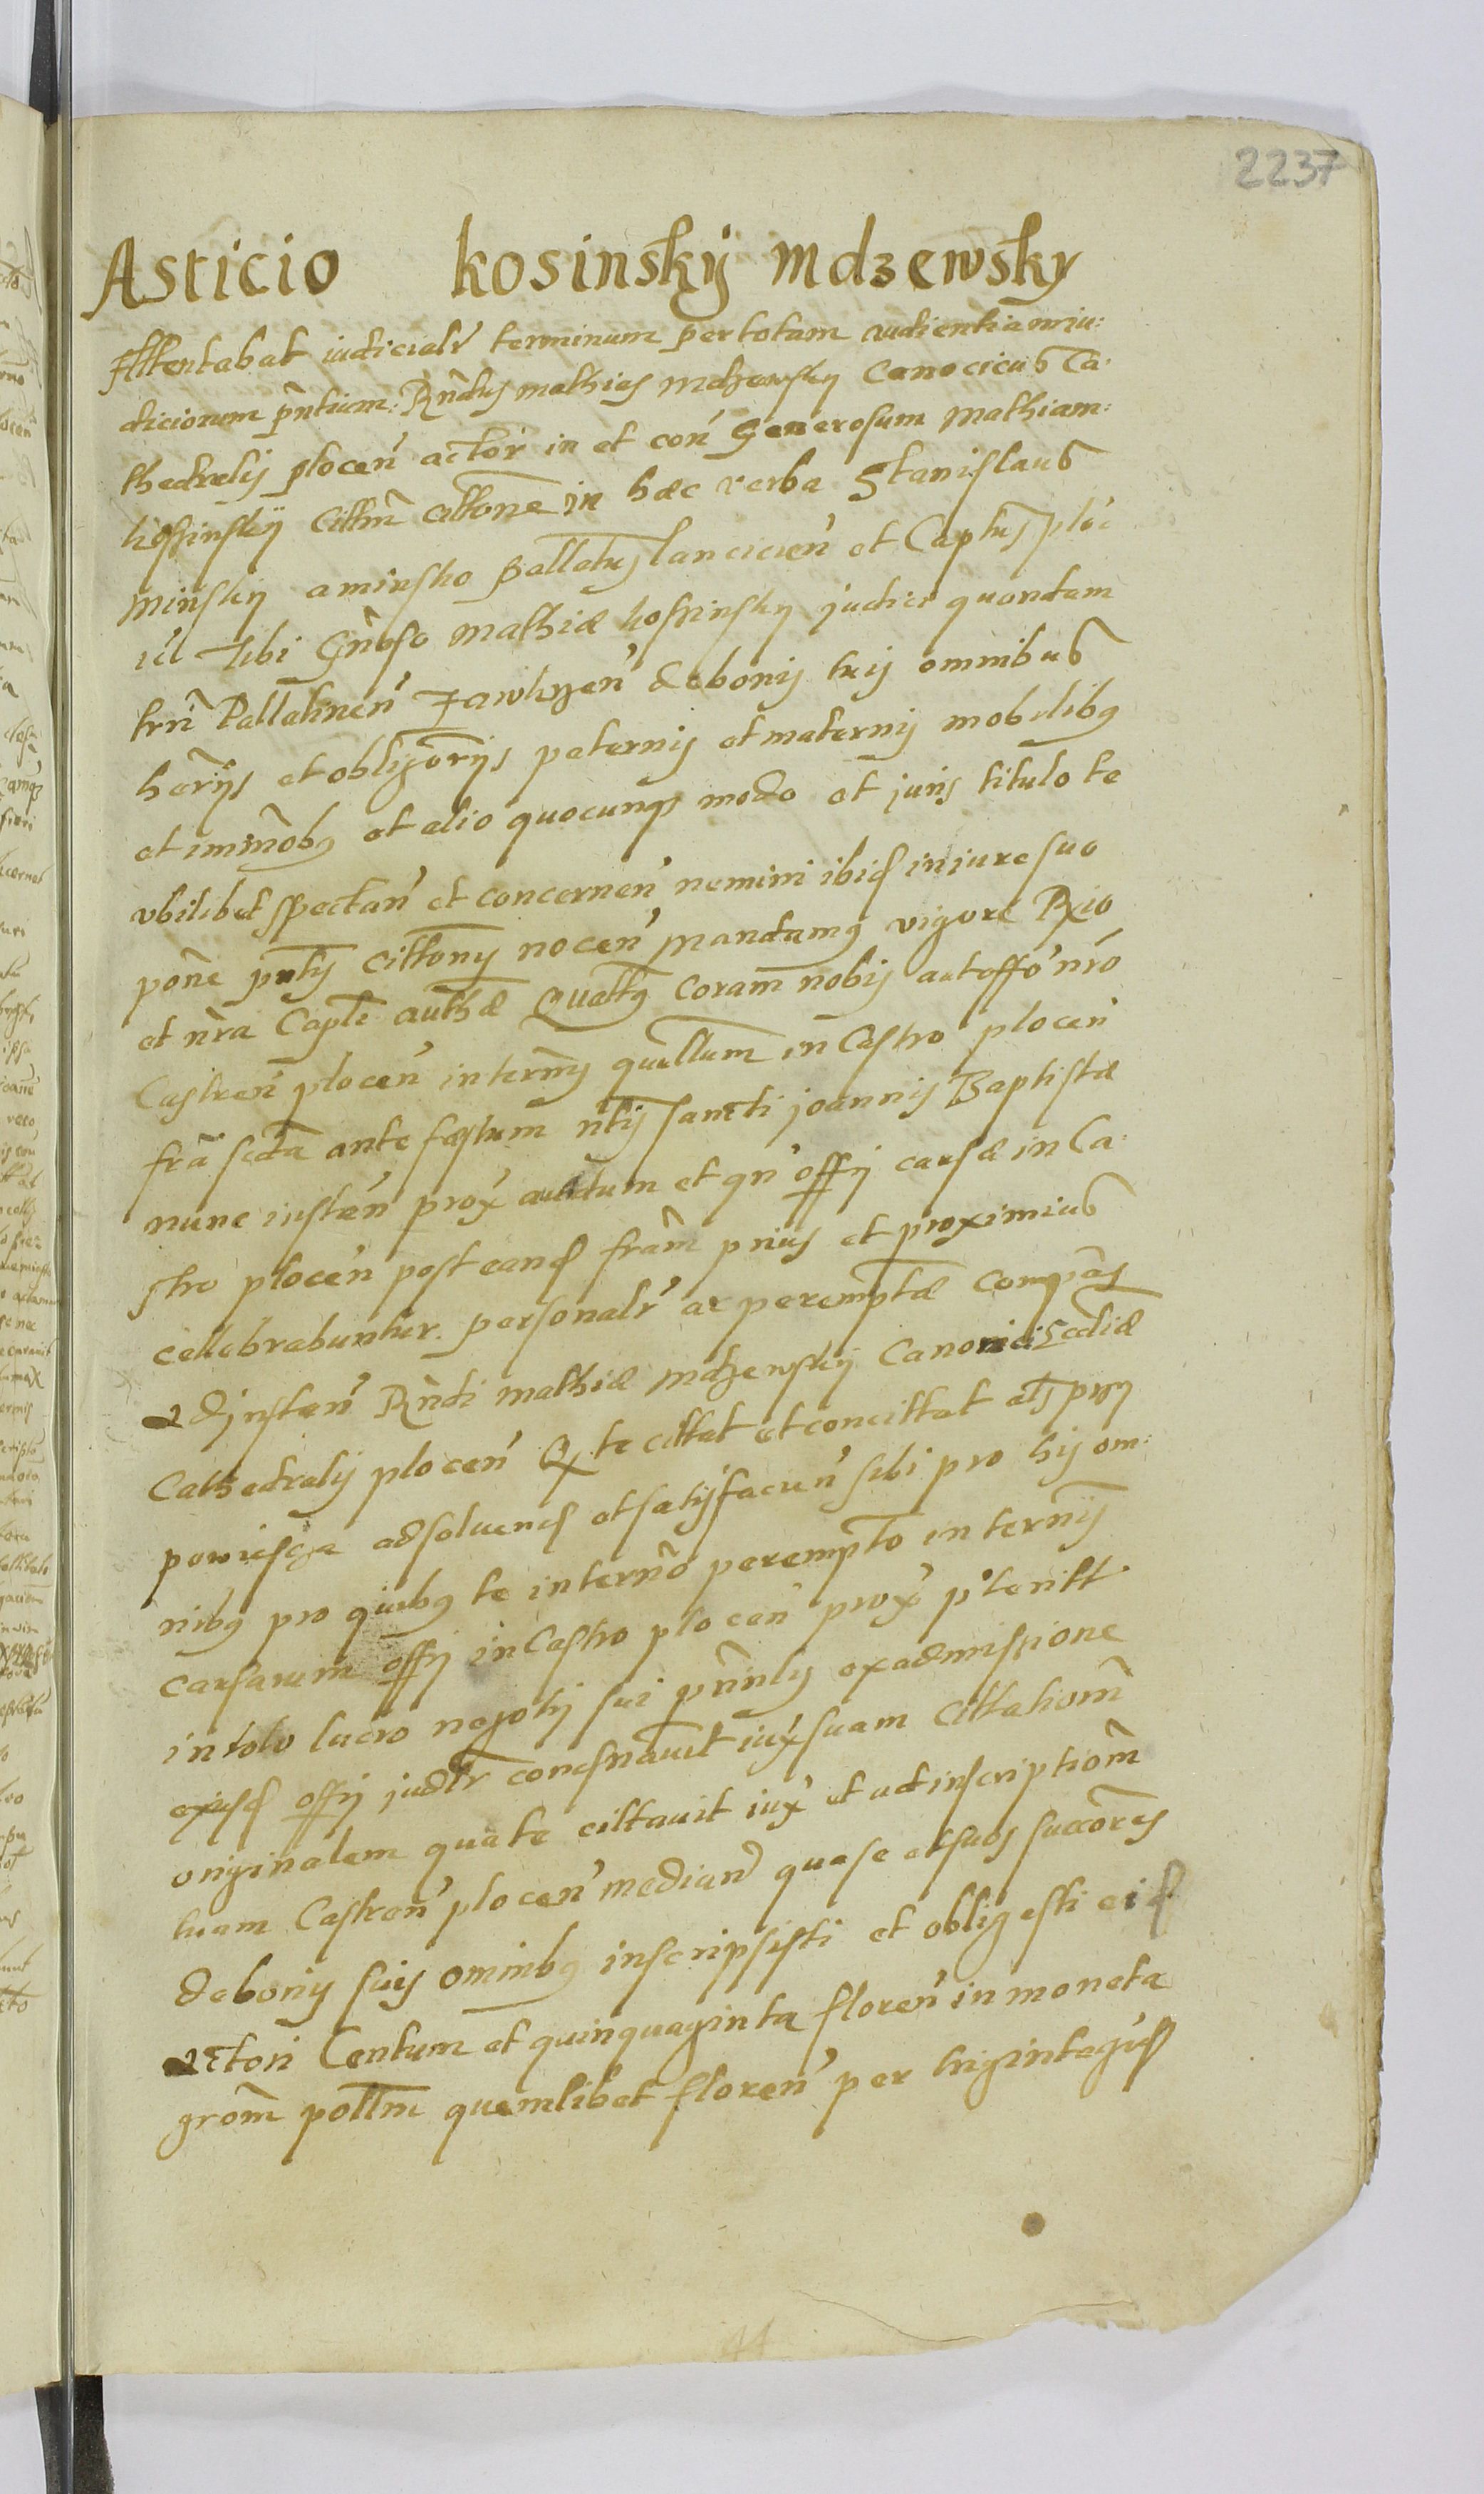 2237
Asticio kosinskÿ mdzewsky
Attentabat iudicialr terminum per totam audientiam iu:
diciorum pntium: Rndus mathias mdzewsky Canocicus Ca.
thedralis plocen actor in et con Generosum Mathiam:
kossinskÿ cittm cittone in hæc verba Stanislaus
Minsky a minsko pallatus lancicien et Captus ploc
tibi Gnoso Mathiæ kossinsky judici quondam
trri Pallatinen Zawkrzen de bonis tuis omnibus
herijs et obligorijs paternis et maternis mobilibq
et immobq et alio quocunq modo et juris titulo te
vbilibet spectan et concernen nemini ibid in iure suo
pone pntis cittonis nocen mandamq vigore Rxio
et nra Captli autha Quattq coram nobis aut offo nro
Castren plocen in termis qurellarum in Castro plocen
fra scda ante festum ntis sancti joannis Baptistæ
nunc insten prox auditum et qn offij causæ in Ca.
stro plocen post eand fram prius et proximius
cellebrabuntur. personalr ac peremptæ compas
Ad jnstan Rndi mathiæ mdzewskÿ Canonici Ecclia
Cathedralis plocen Q te cittat et concittat als przy
powiescza ad soluend et satisfacien sibi pro his om:
nibq pro quibq te in termo perempto in ternis
causarum offij in Castro plocen prox pterito
in toto lucro negotij sui prinlis ex admissione
eiusd offij judlr condnauit iux suam cittationm
originalem qua te cittauit iux et ad inscriptiom
tuam Castren plocen median qua se et suos succores
de bonis suis omnibq inscripsisti et obligasti eid
Actori Centum et quinquaginta floren in moneta
grom pollm quemlibet floren per triginta gros